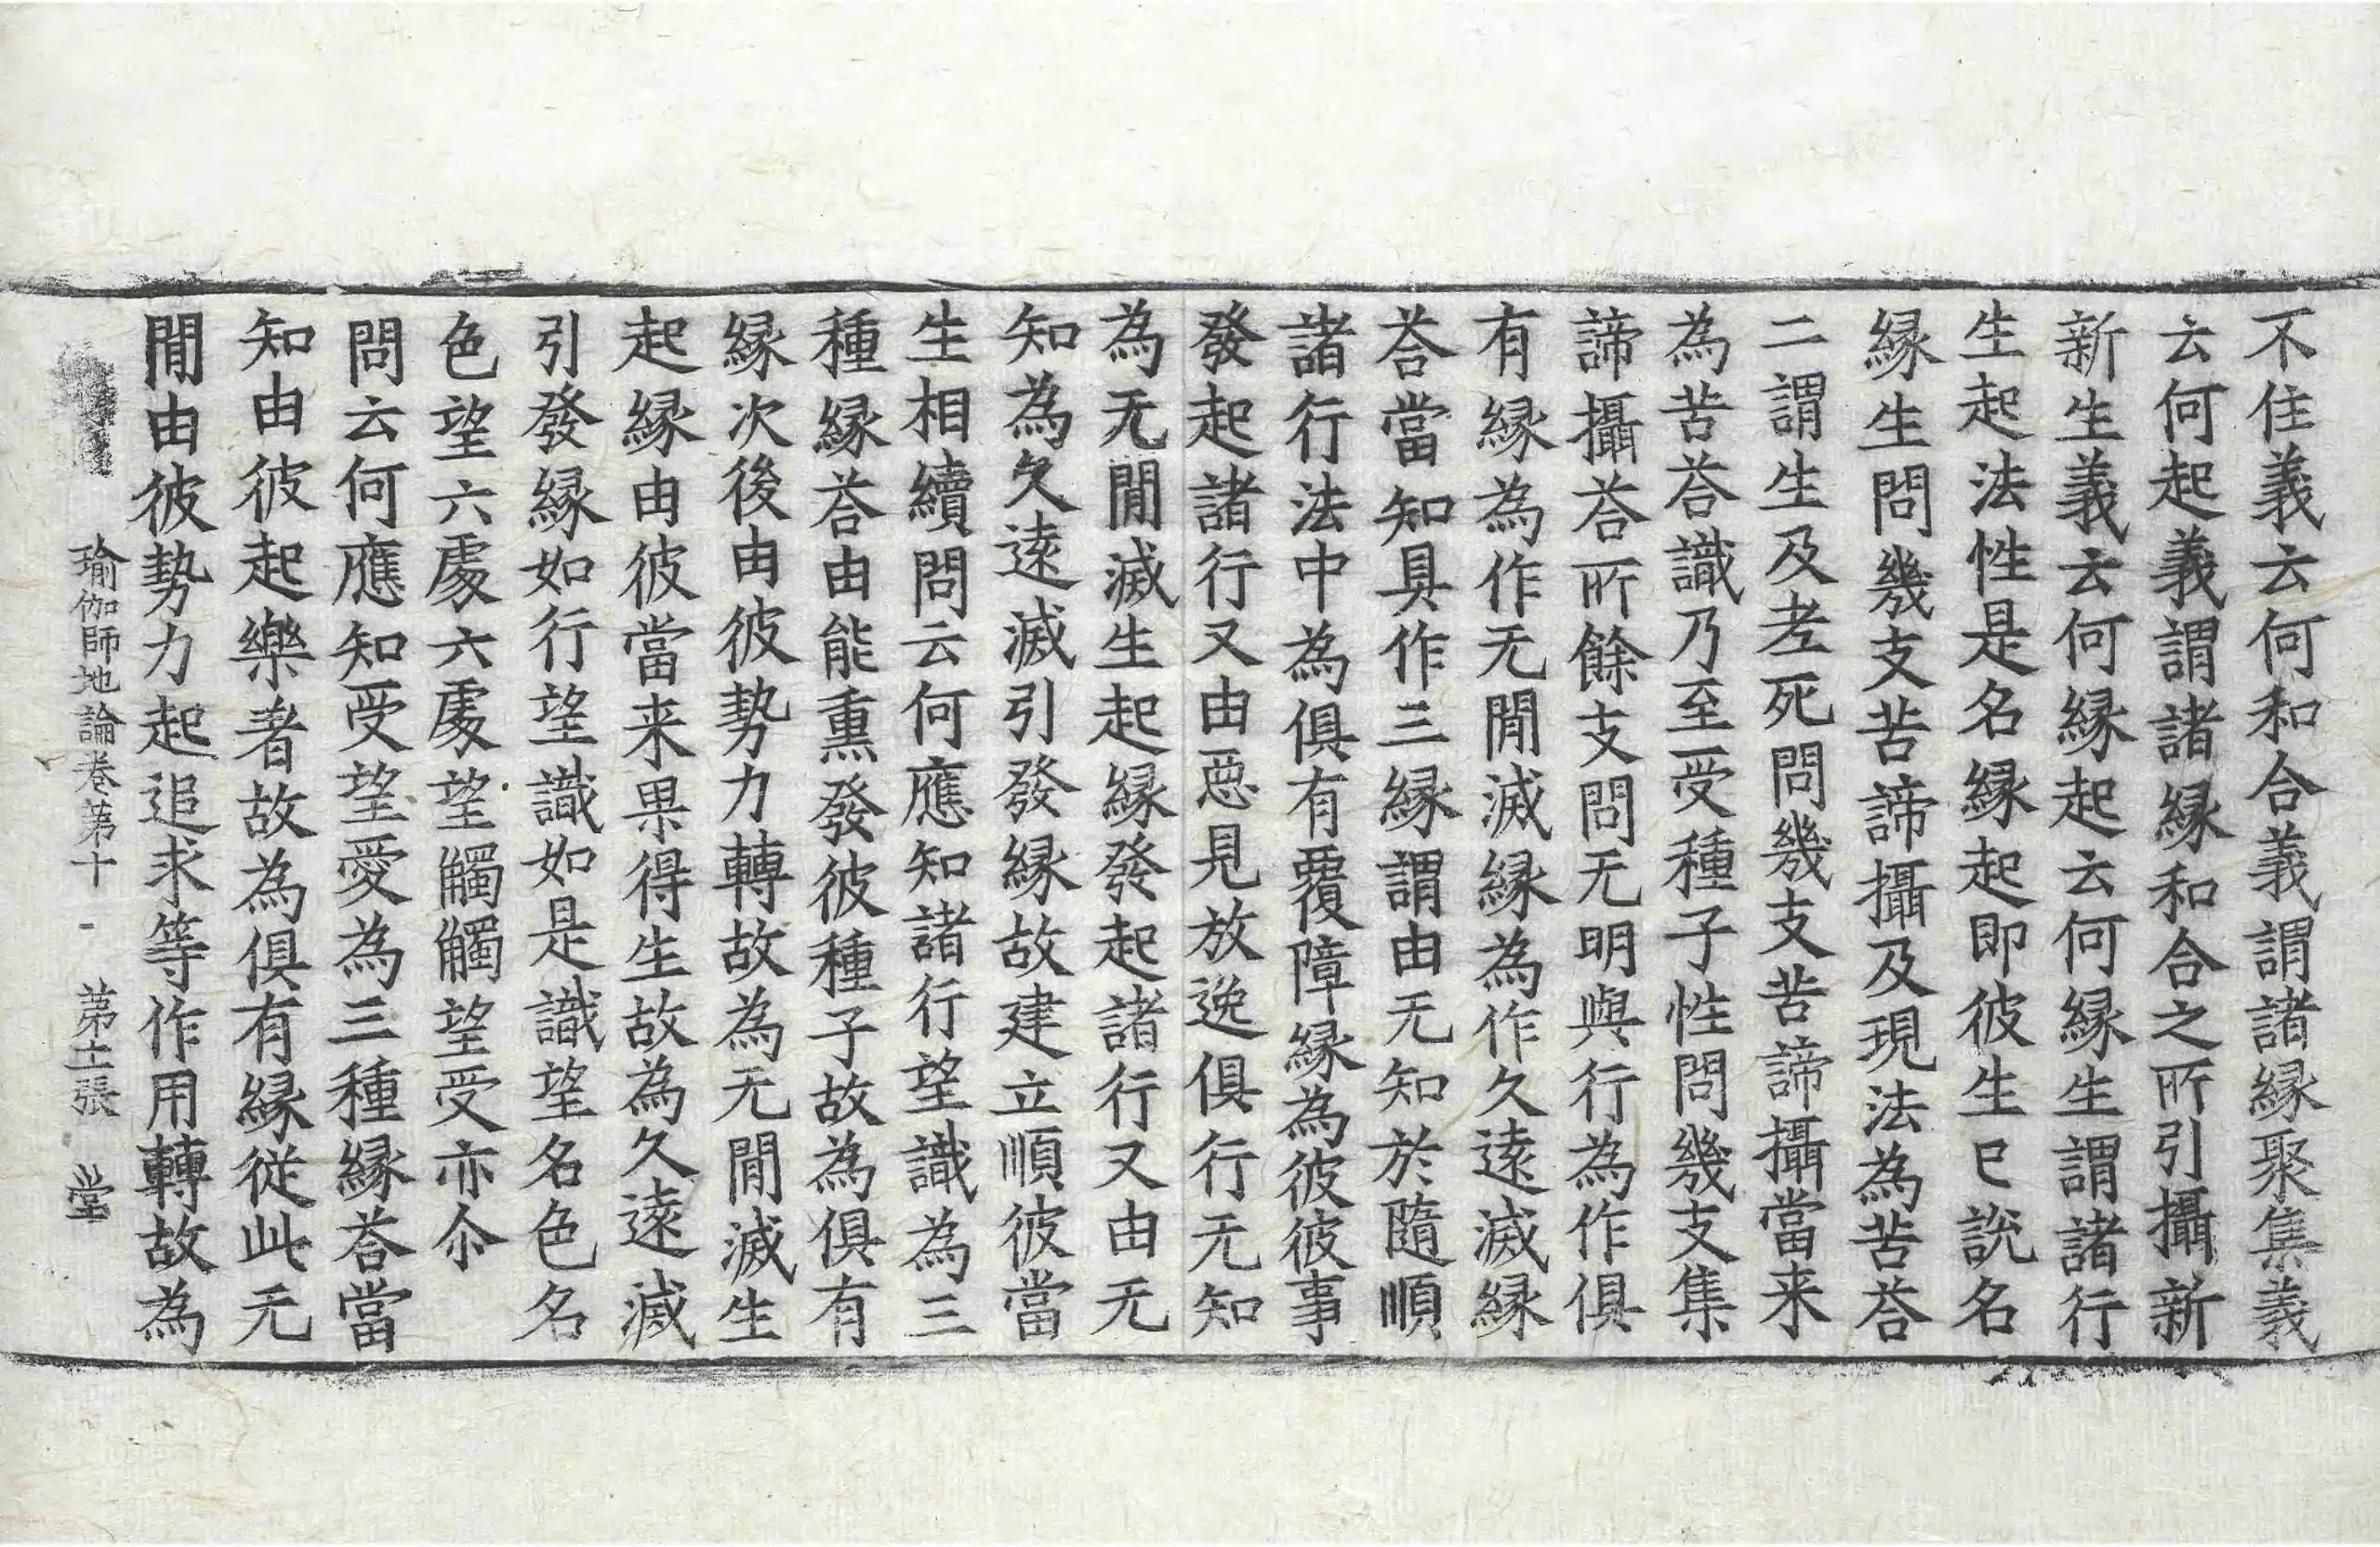 不住義云何和合義謂諸縁聚集義
云何起義謂諸縁和合之所引攝新
新生義云何縁起云何縁生謂諸行
生起法性是名縁起即彼生已說名
縁生問幾支苦諦攝及現法為苦荅
二謂生及老死問幾支苦諦攝當来
為苦荅識乃至受種子性問幾支集
諦攝荅所餘支問无明與行為作俱
有縁為作无閒滅縁為作久遠滅縁
荅當知具作三縁謂由无知於隨順
諸行法中為俱有覆障縁為彼彼事
發起諸行又由惡見放逸俱行无知
為无閒滅生起縁發起諸行又由无
知為久遠滅引發縁故建立順彼當
生相續問云何應知諸行望識為三
種縁荅由能熏發彼種子故為俱有
縁次後由彼勢力轉故為无閒滅生
起縁由彼當来果得生故為久遠滅
引發縁如行望識如是識望名色名
色望六處六處望觸觸望受亦尒
問云何應知受望愛為三種縁荅當
知由彼起樂著故為俱有縁從此无
閒由彼勢力起追求等作用轉故為
瑜伽師地論卷第十 第十二張 堂